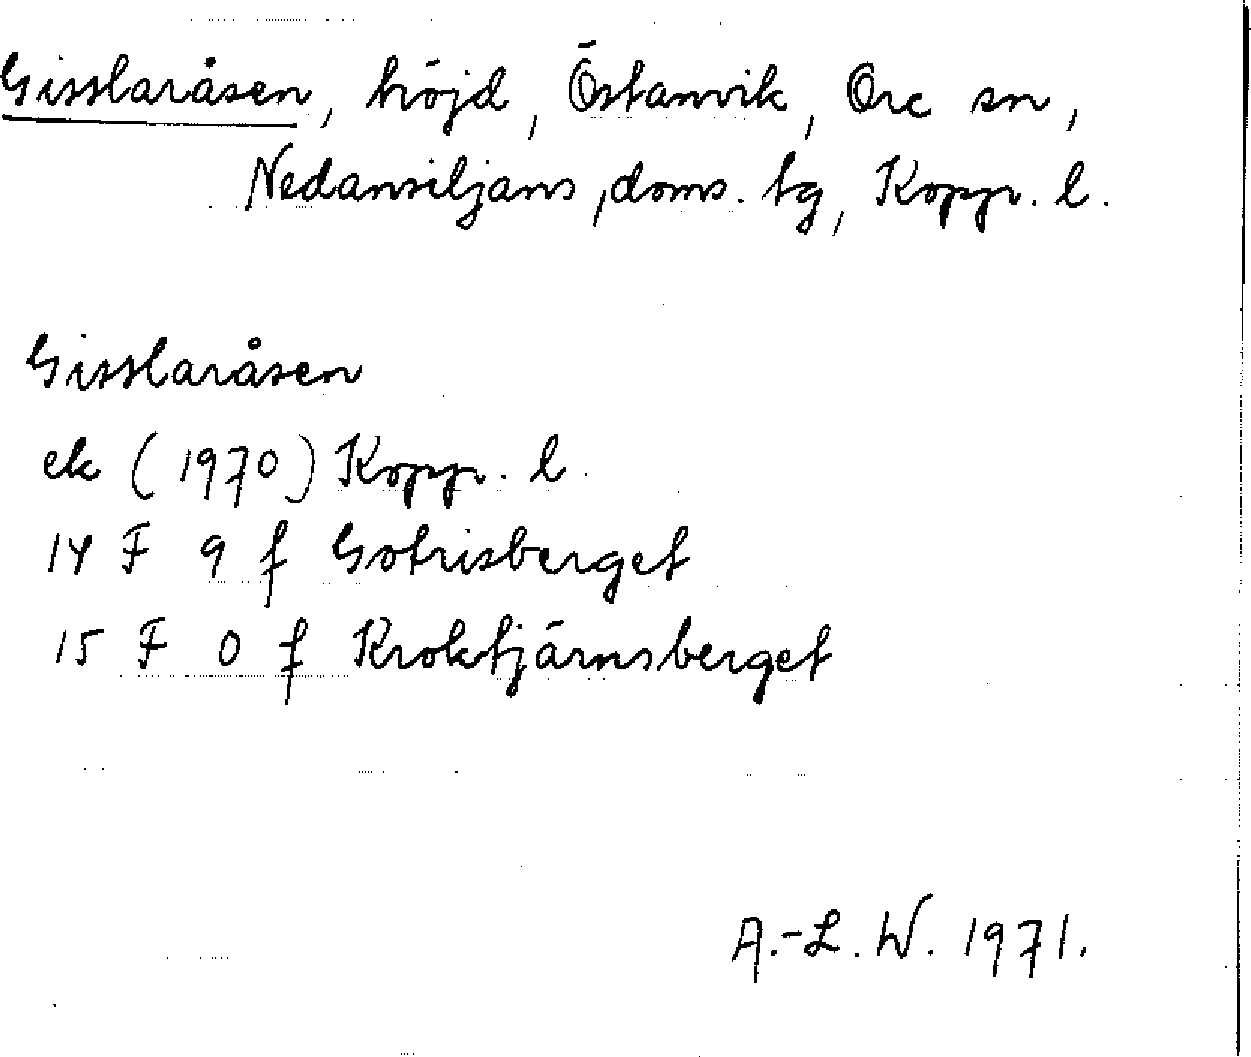 Gisslaråsen, höjd, Östanvik, Ore sn,
Nedansiljans doms. tg, Kopp. l.
Gisslaråsen
ek (1970) Kopp. l.
14 F 9 f Gotrisberget
15 F 0 f Kroktjärnsberget
A.-L. W. 1971.